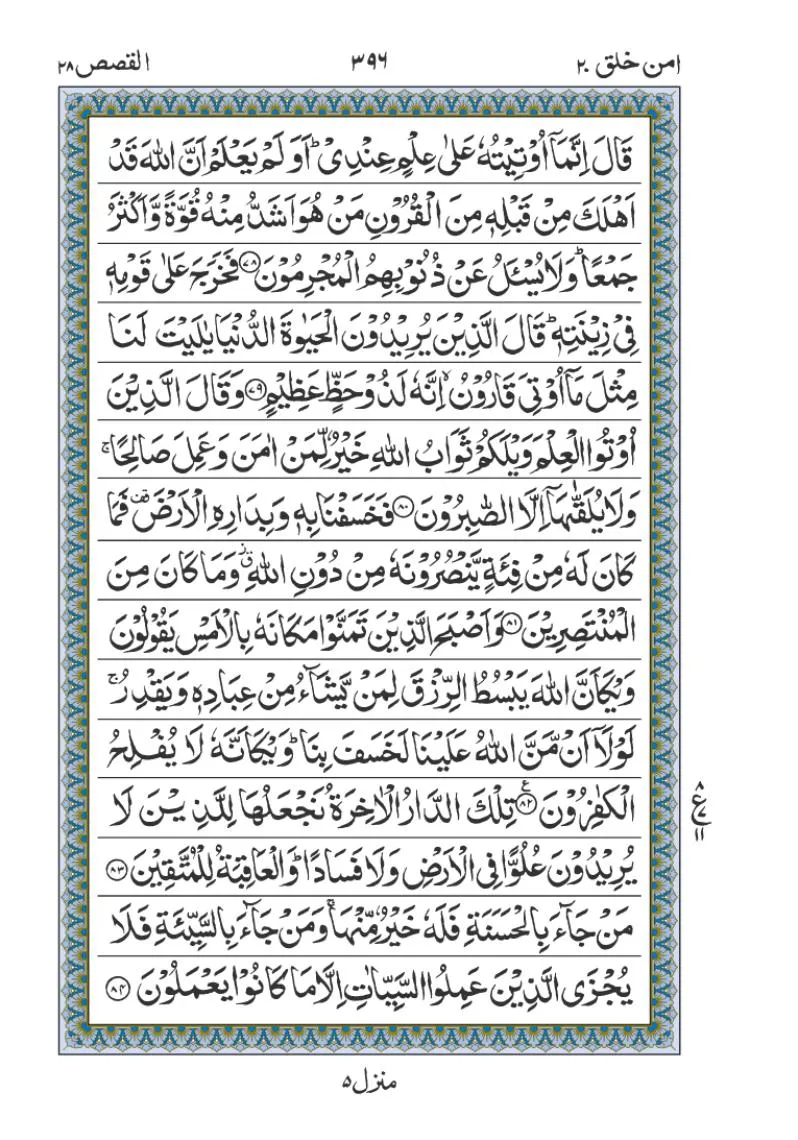 امن خلق ۲۰ ۳۹۶ القصص ۲۸
قَالَ اِنَّمَاۤ اُوْتِیْتُهٗ عَلٰى عِلْمٍ عِنْدِیْؕ اَوَ لَمْ یَعْلَمْ اَنَّ اللّٰهَ قَدْ
اَهْلَكَ مِنْ قَبْلِهٖ مِنَ الْقُرُوْنِ مَنْ هُوَ اَشَدُّ مِنْهُ قُوَّةً وَّ اَكْثَرُ
جَمْعًاؕ وَ لَا یُسْـَٔلُ عَنْ ذُنُوْبِهِمُ الْمُجْرِمُوْنَ ۝۷۸ فَخَرَجَ عَلٰى قَوْمِهٖ
فِیْ زِیْنَتِهٖؕ قَالَ الَّذِیْنَ یُرِیْدُوْنَ الْحَیٰوةَ الدُّنْیَا یٰلَیْتَ لَنَا
مِثْلَ مَاۤ اُوْتِیَ قَارُوْنُۙ اِنَّهٗ لَذُوْ حَظٍّ عَظِیْمٍ ۝۷۹ وَ قَالَ الَّذِیْنَ
اُوْتُوا الْعِلْمَ وَیْلَكُمْ ثَوَابُ اللّٰهِ خَیْرٌ لِّمَنْ اٰمَنَ وَ عَمِلَ صَالِحًاۚ
وَ لَا یُلَقّٰىهَاۤ اِلَّا الصّٰبِرُوْنَ ۝۸۰ فَخَسَفْنَا بِهٖ وَ بِدَارِهِ الْاَرْضَ۫ فَمَا
كَانَ لَهٗ مِنْ فِئَةٍ یَّنْصُرُوْنَهٗ مِنْ دُوْنِ اللّٰهِۗ وَ مَا كَانَ مِنَ
الْمُنْتَصِرِیْنَ ۝۸۱ وَ اَصْبَحَ الَّذِیْنَ تَمَنَّوْا مَكَانَهٗ بِالْاَمْسِ یَقُوْلُوْنَ
وَیْكَاَنَّ اللّٰهَ یَبْسُطُ الرِّزْقَ لِمَنْ یَّشَآءُ مِنْ عِبَادِهٖ وَ یَقْدِرُۚ
لَوْ لَاۤ اَنْ مَّنَّ اللّٰهُ عَلَیْنَا لَخَسَفَ بِنَاؕ وَیْكَاَنَّهٗ لَا یُفْلِحُ
الْكٰفِرُوْنَ ۝۸۲ تِلْكَ الدَّارُ الْاٰخِرَةُ نَجْعَلُهَا لِلَّذِیْنَ لَا
۸ ع ۷ ۱۱
یُرِیْدُوْنَ عُلُوًّا فِی الْاَرْضِ وَ لَا فَسَادًاؕ وَ الْعَاقِبَةُ لِلْمُتَّقِیْنَ ۝۸۳
مَنْ جَآءَ بِالْحَسَنَةِ فَلَهٗ خَیْرٌ مِّنْهَاۚ وَ مَنْ جَآءَ بِالسَّیِّئَةِ فَلَا
یُجْزَى الَّذِیْنَ عَمِلُوا السَّیِّاٰتِ اِلَّا مَا كَانُوْا یَعْمَلُوْنَ ۝۸۴
منزل ۵